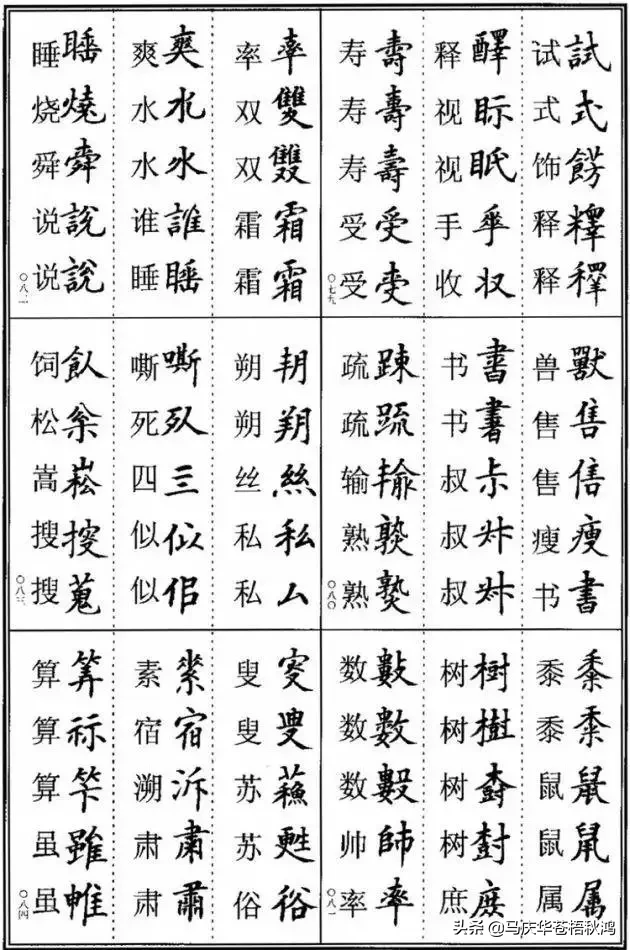 试試式式饰餝释释釋
释醳视眎视眡手收収
寿壽寿壽寿壽受受受
〇七九
兽獸售售售瘦瘦书書
书書书書叔尗叔叔
疏踈疏䟽输熟熟
〇八〇
黍黍黍鼠鼠鼠属属
树樹树樹树树尌庶庻
数數数數数數帅帥率率
〇八一
率率双雙双雙霜霜霜霜
爽爽水水水水谁誰睡睡
睡睡烧燒舜舜说說说說
〇八二
朔朔朔丝絲私私私厶
嘶嘶死四亖似似似佀
饲飤松枀嵩崧搜搜蒐
〇八三
叟叟苏蘇苏甦俗俗
素宿宿溯泝肃肅肃
算筭算祘算虽雖虽
〇八四
头条 @马庆华苍梧秋鸿